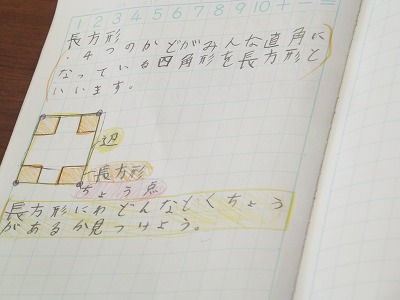 1 2 3 4 5 6 7 8 9 10 + - =
長方形
・4つのかどがみんな直角に
なっている四角形を長方形と
いいます。
辺
長方形
ちょう点
長方形にわどんなとくちょう
があるか見つけよう。